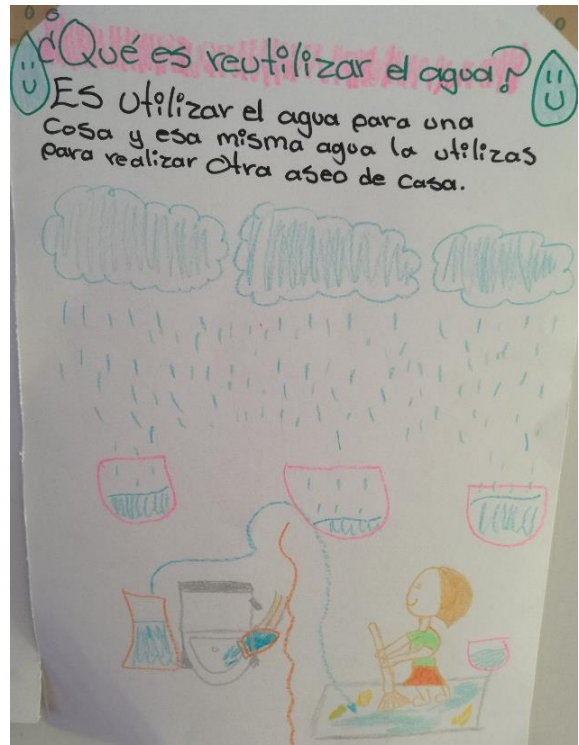 ¿Qué es reutilizar el agua?
Es utilizar el agua para una
cosa y esa misma agua la utilizas
para realizar otra aseo de casa.